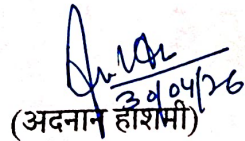 30/04/26
(अदनान हाशमी)